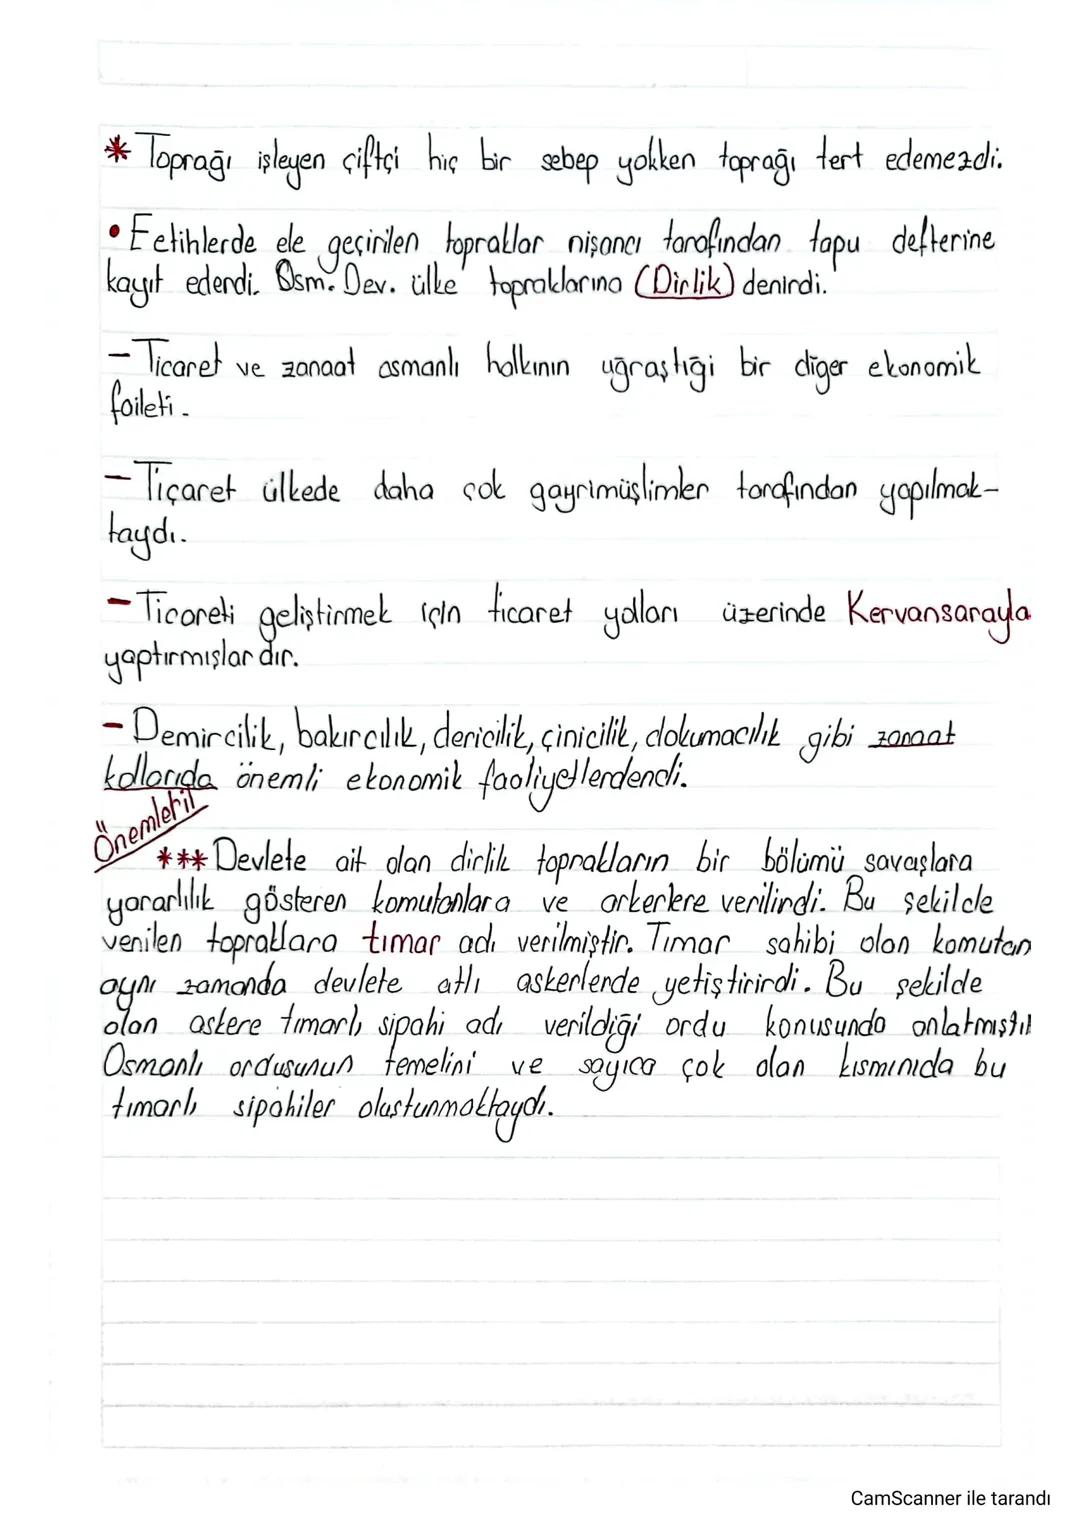 * Toprağı işleyen çiftçi hiç bir sebep yokken toprağı tert edemezdi.
• Fetihlerde ele geçirilen topraklar nişancı tarafından tapu defterine
kayıt ederdi. Osm. Dev. ülke topraklarına (Dirlik) denirdi.
- Ticaret ve zanaat osmanlı halkının uğraştığı bir diğer ekonomik
faileti.
- Tiçaret ülkede daha çok gayrimüslimler tarafından yapılmak-
taydı.
- Ticareti geliştirmek için ticaret yolları üzerinde Kervansarayla
yaptırmışlardır.
- Demircilik, bakırcılık, dericilik, çinicilik, dokumacılık gibi zanaat
kollarıda önemli ekonomik faaliyetlerdendi.
Önemlehil
*** Devlete ait olan dirlik toprakların bir bölümü savaşlara
yararlılık gösteren komutanlara ve arkerlere verilirdi. Bu şekilde
verilen topraklara tımar adı verilmiştir. Tımar sahibi olan komutan
aynı zamanda devlete atlı askerlerde yetiştirirdi. Bu şekilde
olan askere tımarlı sipahi adı verildiği ordu konusunda anlatmıştıl
Osmanlı ordusunun temelini ve sayıca çok olan kısmınıda bu
tımarlı sipahiler oluşturmaktaydı.
CamScanner ile tarandı